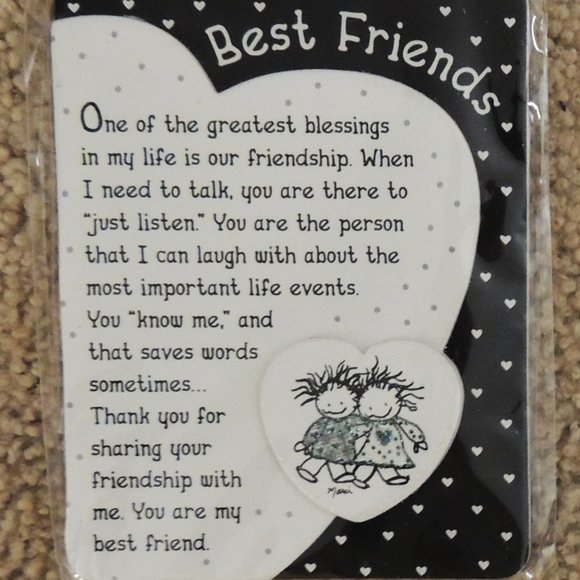 Best Friends
One of the greatest blessings
in my life is our friendship. When
I need to talk, you are there to
“just listen.” You are the person
that I can laugh with about the
most important life events.
You “know me,” and
that saves words
sometimes...
Thank you for
sharing your
friendship with
me. You are my
best friend.
Marci